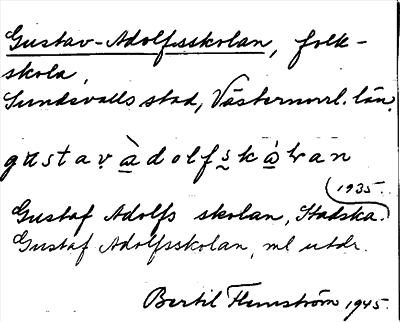 Gustav-Adolfsskolan, folk-
skola,
Sundsvalls stad, Västernorrl. län.
gustav àdolfskòlan
1935.
Gustaf Adolfs skolan, Stadska.
Gustaf Adolfsskolan, ml utdr.
Bertil Flemström 1945.